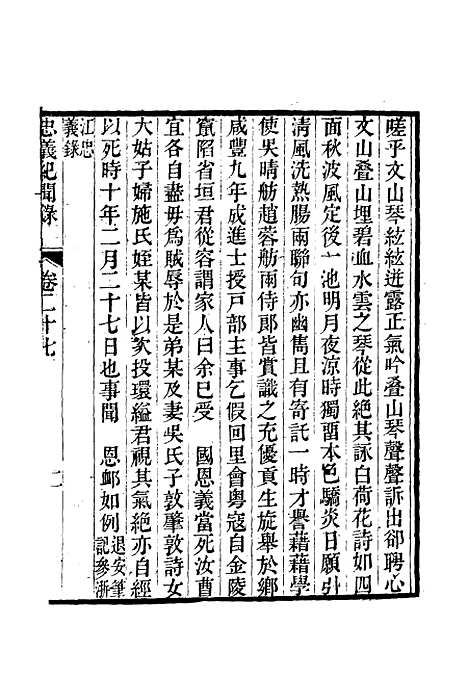 嗟乎文山琴絃絃迸露正氣吟疊山琴聲聲訴出卻聘心
文山疊山埋碧血水雲之琴從此絕其詠白荷花詩如四
面秋波風定後一池明月夜涼時獨留本色驕炎日願引
清風洗熱腸兩聯句亦幽雋且有寄託一時才譽藉藉學
使吳晴舫趙蓉舫兩侍郎皆賞識之充優貢生旋舉於鄉
咸豐九年成進士授戶部主事乞假回里會粵寇自金陵
竄陷省垣君從容謂家人曰余巳受　國恩義當死汝曹
宜各自盡毋爲賊辱於是弟某及妻吳氏子敦肇敦詩女
大姑子婦施氏姪某皆以次投環縊君視其氣絕亦自經
以死時十年二月二十七日也事聞　恩卹如例退安筆
記參浙
江忠
義錄
忠義紀聞錄　卷二十七　二